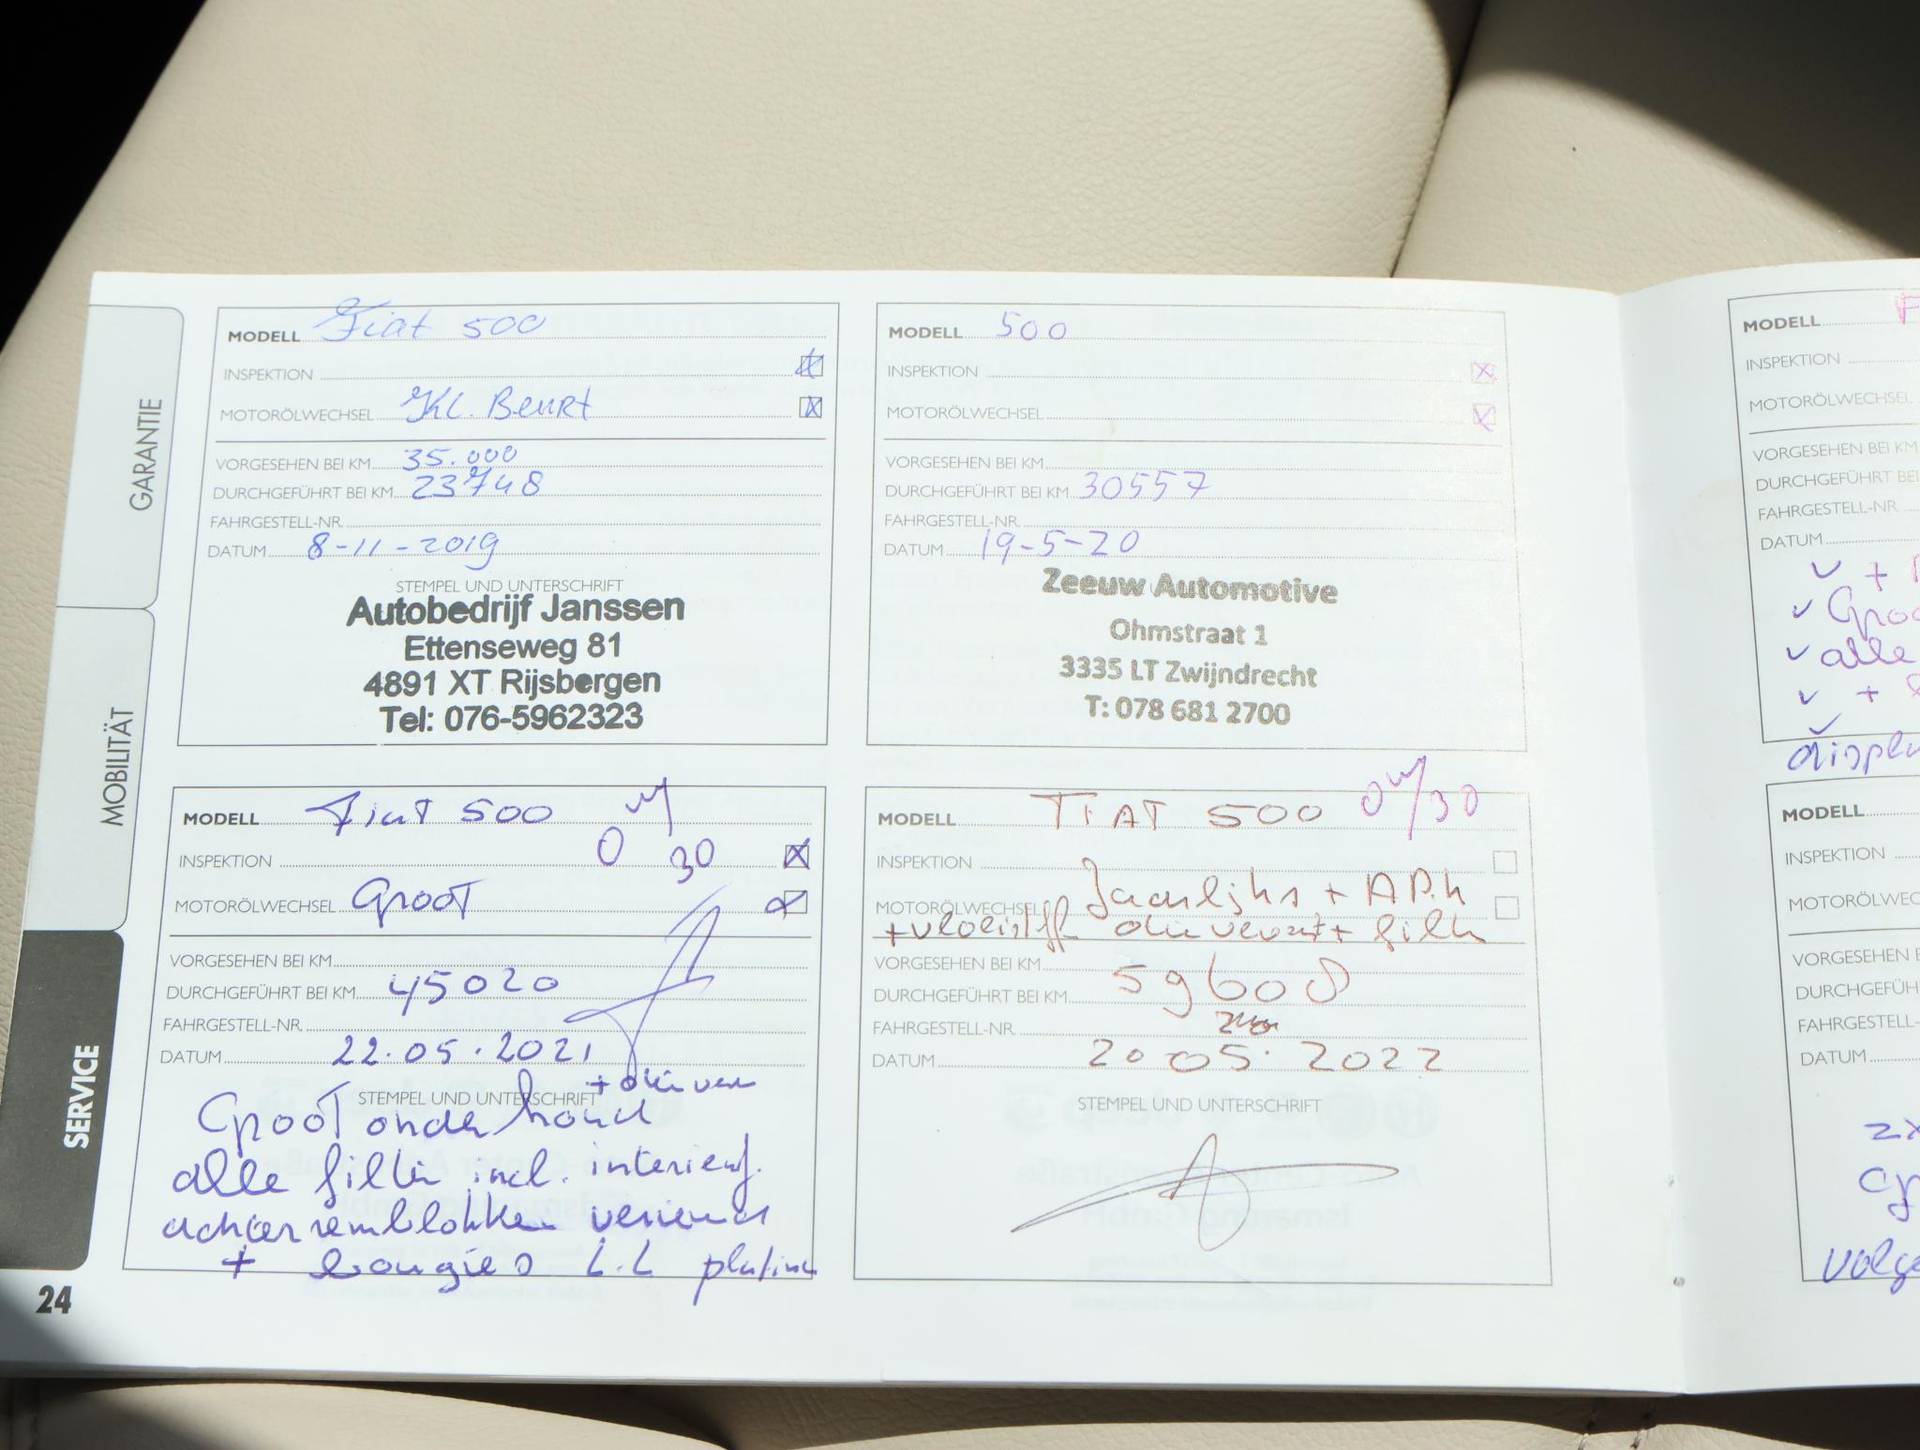 GARANTIE
MOBILITÄT
SERVICE
24
MODELL Fiat 500
INSPEKTION
MOTORÖLWECHSEL Kl. Beurt
VORGESEHEN BEI KM 35.000
DURCHGEFÜHRT BEI KM 23748
FAHRGESTELL-NR.
DATUM 8-11-2019
STEMPEL UND UNTERSCHRIFT
Autobedrijf Janssen
Ettenseweg 81
4891 XT Rijsbergen
Tel: 076-5962323
MODELL 500
INSPEKTION
MOTORÖLWECHSEL
VORGESEHEN BEI KM
DURCHGEFÜHRT BEI KM 30557
FAHRGESTELL-NR.
DATUM 19-5-20
Zeeuw Automotive
Ohmstraat 1
3335 LT Zwijndrecht
T: 078 681 2700
MODELL Fiat 500
0W/30
INSPEKTION
MOTORÖLWECHSEL Groot
VORGESEHEN BEI KM
DURCHGEFÜHRT BEI KM 45020
FAHRGESTELL-NR.
DATUM 22.05.2021
STEMPEL UND UNTERSCHRIFT
Groot onderhoud
alle filter incl. interieurf.
achterremblokken
+ bougies L.L platina
MODELL FIAT 500 0W/30
INSPEKTION
MOTORÖLWECHSEL Jaarlijks + APK
+ vloeistoff
VORGESEHEN BEI KM
DURCHGEFÜHRT BEI KM 59608
FAHRGESTELL-NR.
DATUM 20 05. 2022
STEMPEL UND UNTERSCHRIFT
MODELL
INSPEKTION
MOTORÖLWECHSEL
VORGESEHEN BEI KM
DURCHGEFÜHRT BEI
FAHRGESTELL-NR
DATUM
+
alle
+
MODELL
INSPEKTION
MOTORÖLWEC
VORGESEHEN
DURCHGEFÜH
FAHRGESTELL-
DATUM
2x